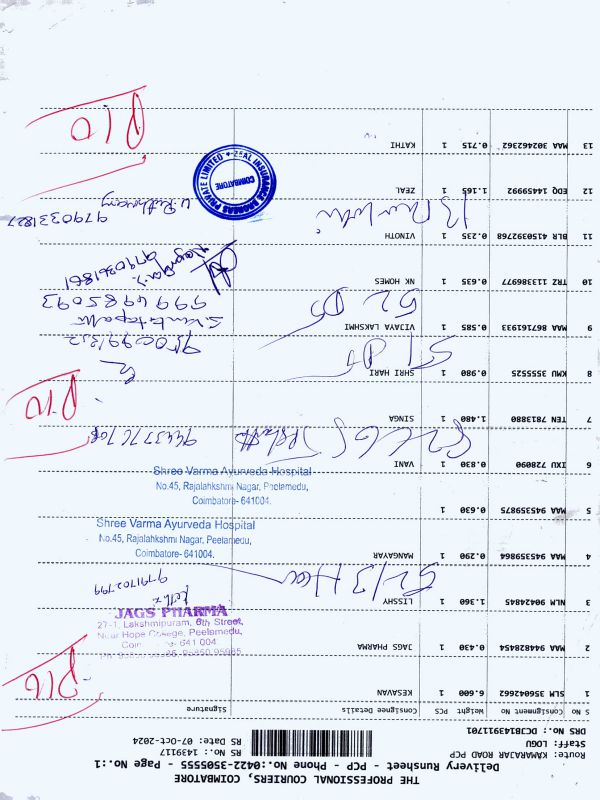 THE PROFESSIONAL COURIERS, COIMBATORE
Delivery Runsheet - PCP - Phone No.:0422-3505555 - Page No.:1
Route: KAMARAJAR ROAD PCP
Staff: LOGU
DRS No.: DCJB143911701
RS No.: 1439117
RS Date: 07-Oct-2024
S No Consignment No Weight PCS Consignee Details Signature
1 SLM 356042662 6.600 1 KESAVAN
2 MAA 944828454 0.430 1 JAGS PHARMA
JAGS PHARMA
27-1, Lakshmipuram, 6th Street,
Near Hope College, Peelamedu,
641 004
3 NLM 90424845 1.360 1 LISSHY
9791702799
4 MAA 945359864 0.290 1 MANGAYAR
Shree Varma Ayurveda Hospital
No.45, Rajalahkshmi Nagar, Peelamedu,
Coimbatore- 641004.
5 MAA 945359875 0.630 1
Shree Varma Ayurveda Hospital
No.45, Rajalahkshmi Nagar, Peelamedu,
Coimbatore- 641004.
6 IXU 728090 0.830 1 VANI
7 TEN 7813880 1.480 1 SINGA
8 KMU 3552525 0.980 1 SHRI HARI
9 MAA 867161933 0.585 1 VIJAYA LAKSHMI
52
9994985093
10 TRZ 113386977 0.635 1 NK HOMES
9790361861
11 BLR 4150392768 0.235 1 VINOTH
9790331827
12 EDQ 14459992 1.165 1 ZEAL
ZEAL INSURANCE BROKERS PRIVATE LIMITED
COIMBATORE
13 MAA 302462362 0.715 1 KATHI